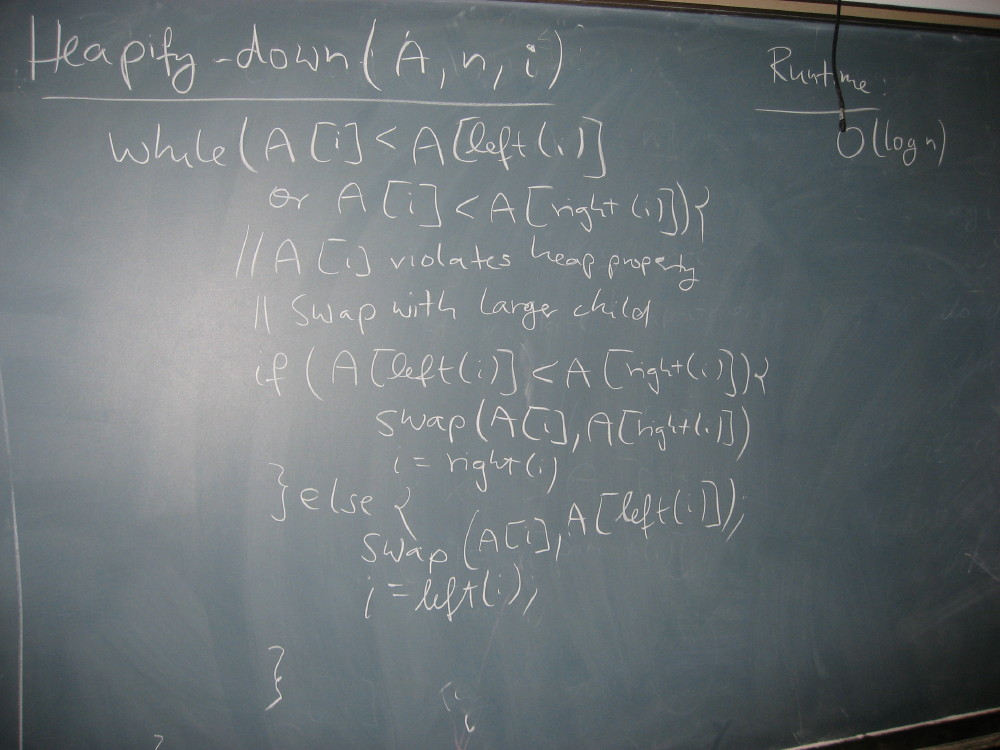 Heapify-down(A, n, i)
Runtime:
O(log n)
while(A[i] < A[left(i)]
or A[i] < A[right(i)]){
// A[i] violates heap property
// Swap with larger child
if (A[left(i)] < A[right(i)]){
swap(A[i], A[right(i)])
i = right(i)
} else {
swap(A[i], A[left(i)]);
i = left(i);
}
}